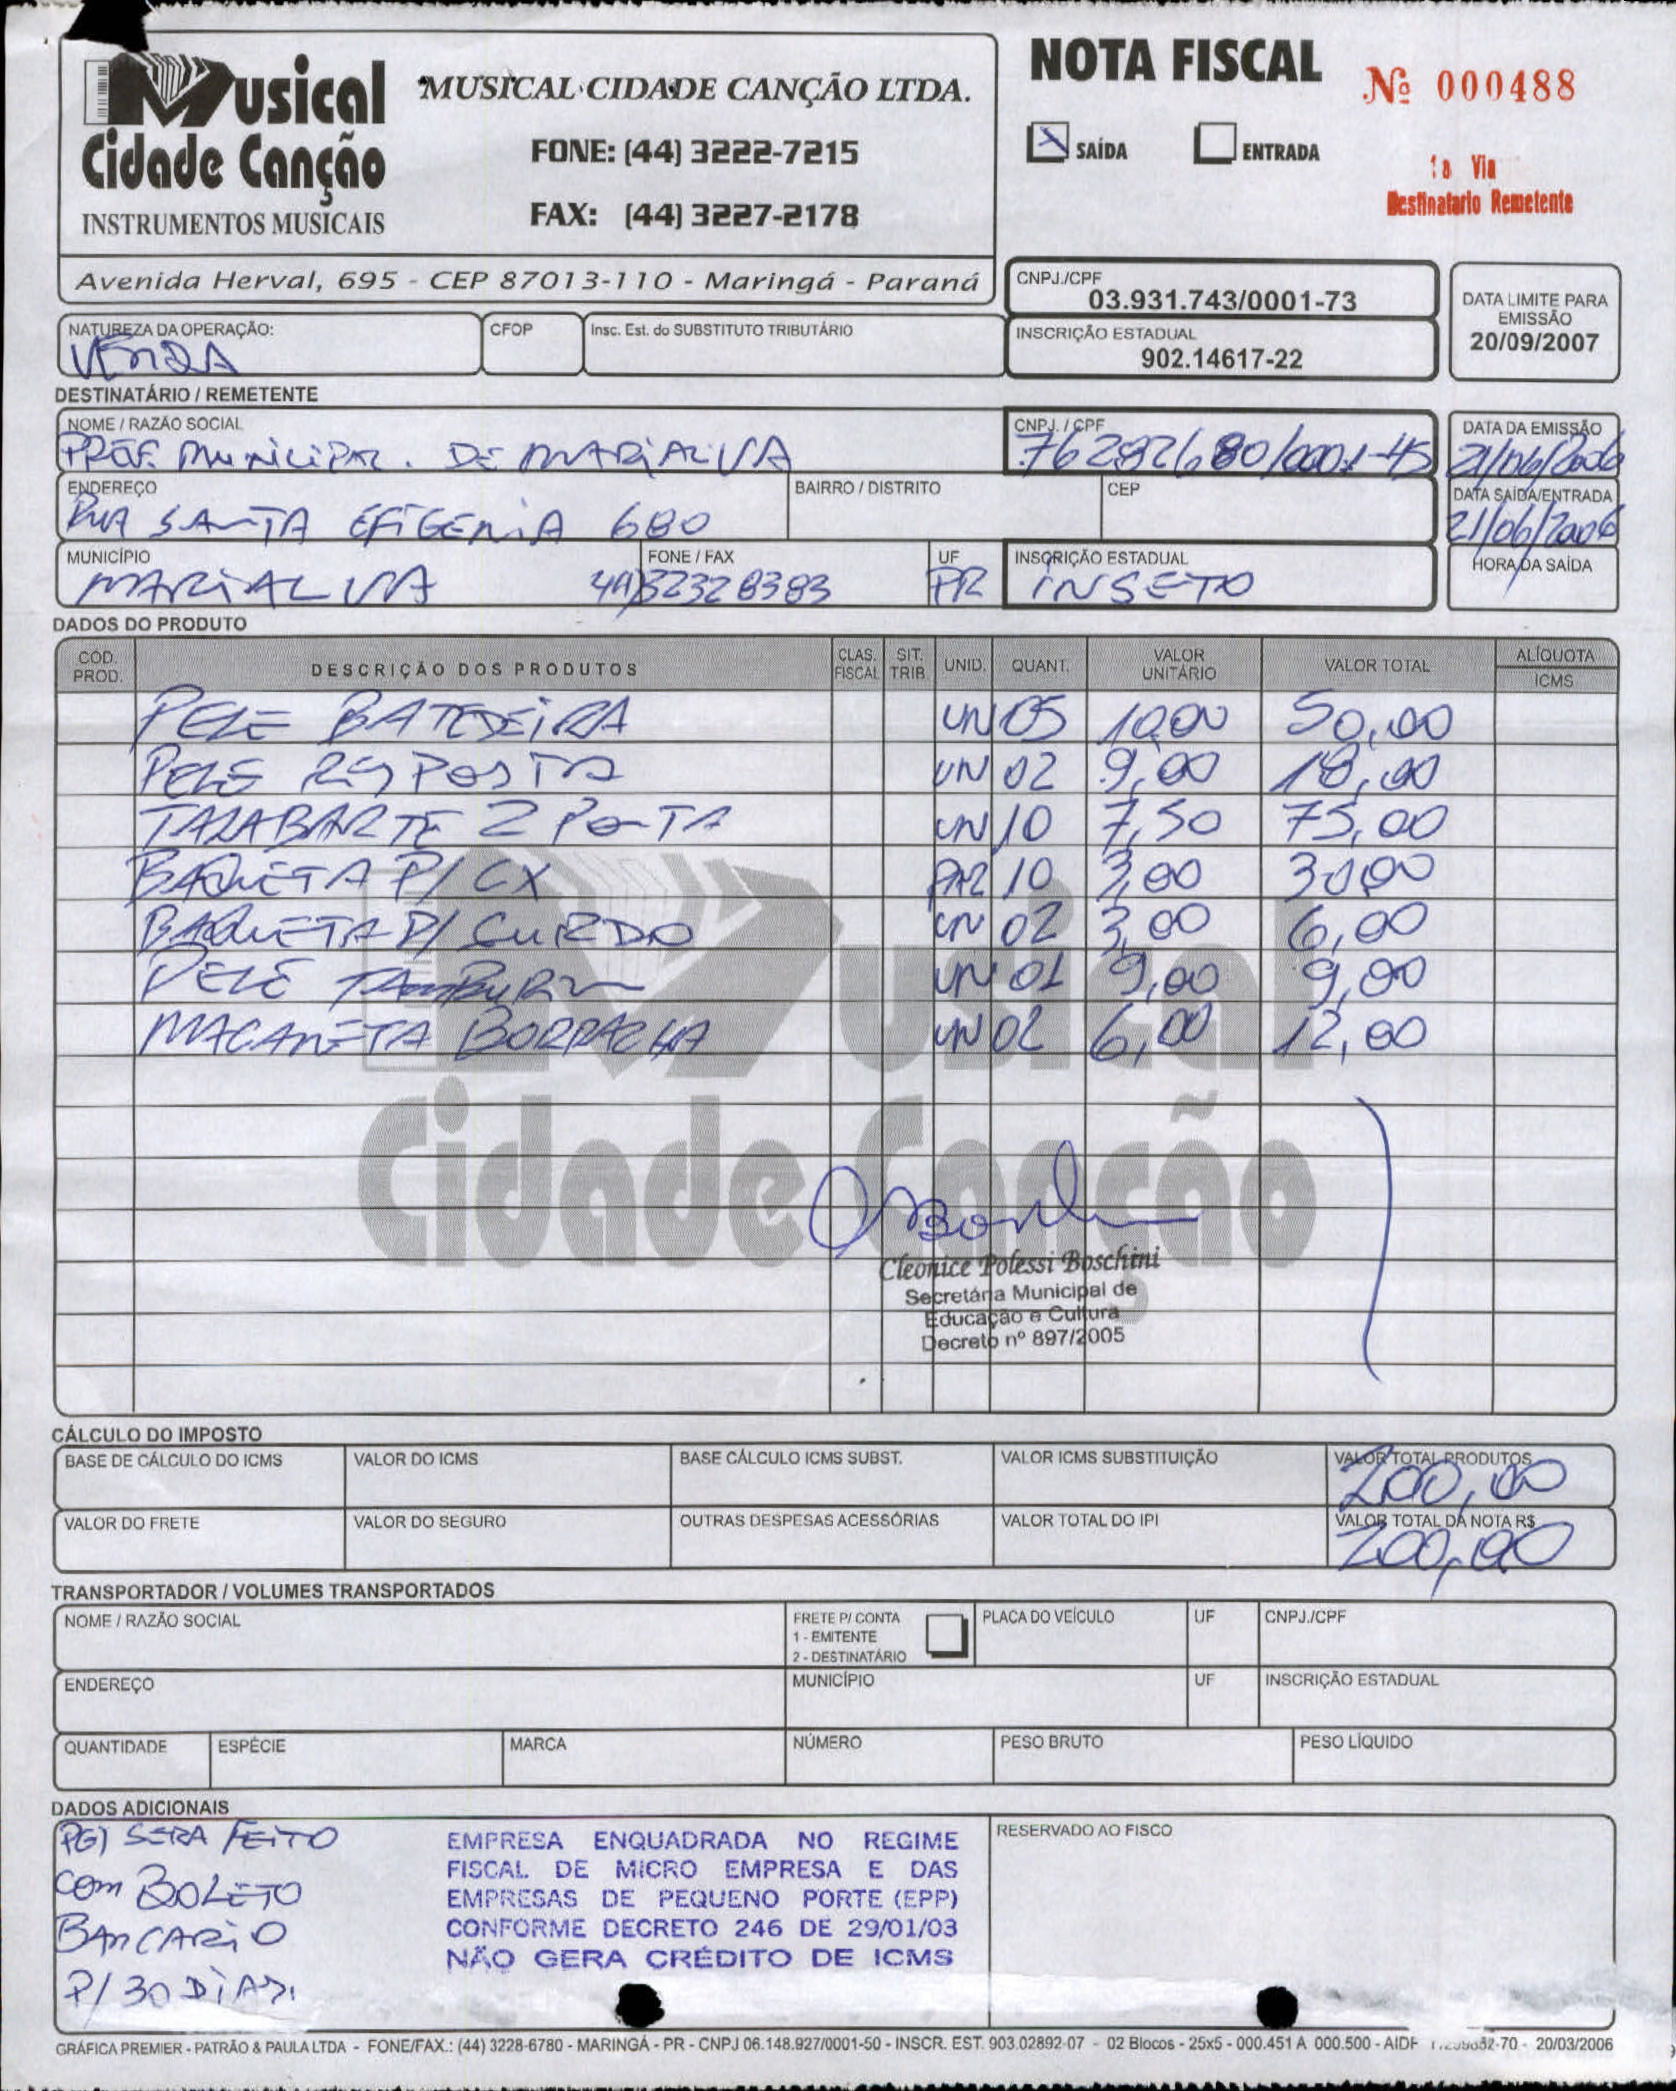 Musical
Cidade Canção
INSTRUMENTOS MUSICAIS
MUSICAL CIDADE CANÇÃO LTDA.
FONE: (44) 3222-7215
FAX: (44) 3227-2178
Avenida Herval, 695 - CEP 87013-110 - Maringá - Paraná
NOTA FISCAL
Nº 000488
SAÍDA
ENTRADA
1ª Via
Destinatario Remetente
CNPJ./CPF
03.931.743/0001-73
INSCRIÇÃO ESTADUAL
902.14617-22
DATA LIMITE PARA
EMISSÃO
20/09/2007
NATUREZA DA OPERAÇÃO:
VENDA
CFOP
Insc. Est. do SUBSTITUTO TRIBUTÁRIO
DESTINATÁRIO / REMETENTE
NOME / RAZÃO SOCIAL
PREF. MUNICIPAL. DE MARIALVA
CNPJ. / CPF
76282680/0001-45
DATA DA EMISSÃO
21/06/2006
ENDEREÇO
RUA SANTA EFIGENIA 680
BAIRRO / DISTRITO
CEP
DATA SAÍDA/ENTRADA
21/06/2006
MUNICÍPIO
MARIALVA
FONE / FAX
44)32328383
UF
PR
INSCRIÇÃO ESTADUAL
INSETO
HORA DA SAÍDA
DADOS DO PRODUTO
CÓD. PROD. DESCRIÇÃO DOS PRODUTOS CLAS. FISCAL SIT. TRIB. UNID. QUANT. VALOR UNITÁRIO VALOR TOTAL ALÍQUOTA ICMS
PELE BATEDEIRA UN 05 10,00 50,00
PELE RESPOSTA UN 02 9,00 18,00
TALABARTE 2 PONTA UN 10 7,50 75,00
BAQUETA P/ CX PAR 10 3,00 30,00
BAQUETA P/ SURDO UN 02 3,00 6,00
PELE TAMBURIM UN 01 9,00 9,00
MACANETA BORRACHA UN 02 6,00 12,00
Musical
Cidade Canção
Cleonice Polessi Boschini
Secretária Municipal de
Educação e Cultura
Decreto nº 897/2005
CÁLCULO DO IMPOSTO
BASE DE CÁLCULO DO ICMS
VALOR DO ICMS
BASE CÁLCULO ICMS SUBST.
VALOR ICMS SUBSTITUIÇÃO
VALOR TOTAL PRODUTOS
200,00
VALOR DO FRETE
VALOR DO SEGURO
OUTRAS DESPESAS ACESSÓRIAS
VALOR TOTAL DO IPI
VALOR TOTAL DA NOTA R$
200,00
TRANSPORTADOR / VOLUMES TRANSPORTADOS
NOME / RAZÃO SOCIAL
FRETE P/ CONTA
1 - EMITENTE
2 - DESTINATÁRIO
PLACA DO VEÍCULO
UF
CNPJ./CPF
ENDEREÇO
MUNICÍPIO
UF
INSCRIÇÃO ESTADUAL
QUANTIDADE
ESPÉCIE
MARCA
NÚMERO
PESO BRUTO
PESO LÍQUIDO
DADOS ADICIONAIS
PGT SERA FEITO
COM BOLETO
BANCARIO
P/ 30 DIAS
EMPRESA ENQUADRADA NO REGIME
FISCAL DE MICRO EMPRESA E DAS
EMPRESAS DE PEQUENO PORTE (EPP)
CONFORME DECRETO 246 DE 29/01/03
NÃO GERA CRÉDITO DE ICMS
RESERVADO AO FISCO
GRÁFICA PREMIER - PATRÃO & PAULA LTDA - FONE/FAX.: (44) 3228-6780 - MARINGÁ - PR - CNPJ 06.148.927/0001-50 - INSCR. EST. 903.02892-07 - 02 Blocos - 25x5 - 000.451 A 000.500 - AIDF - 20/03/2006